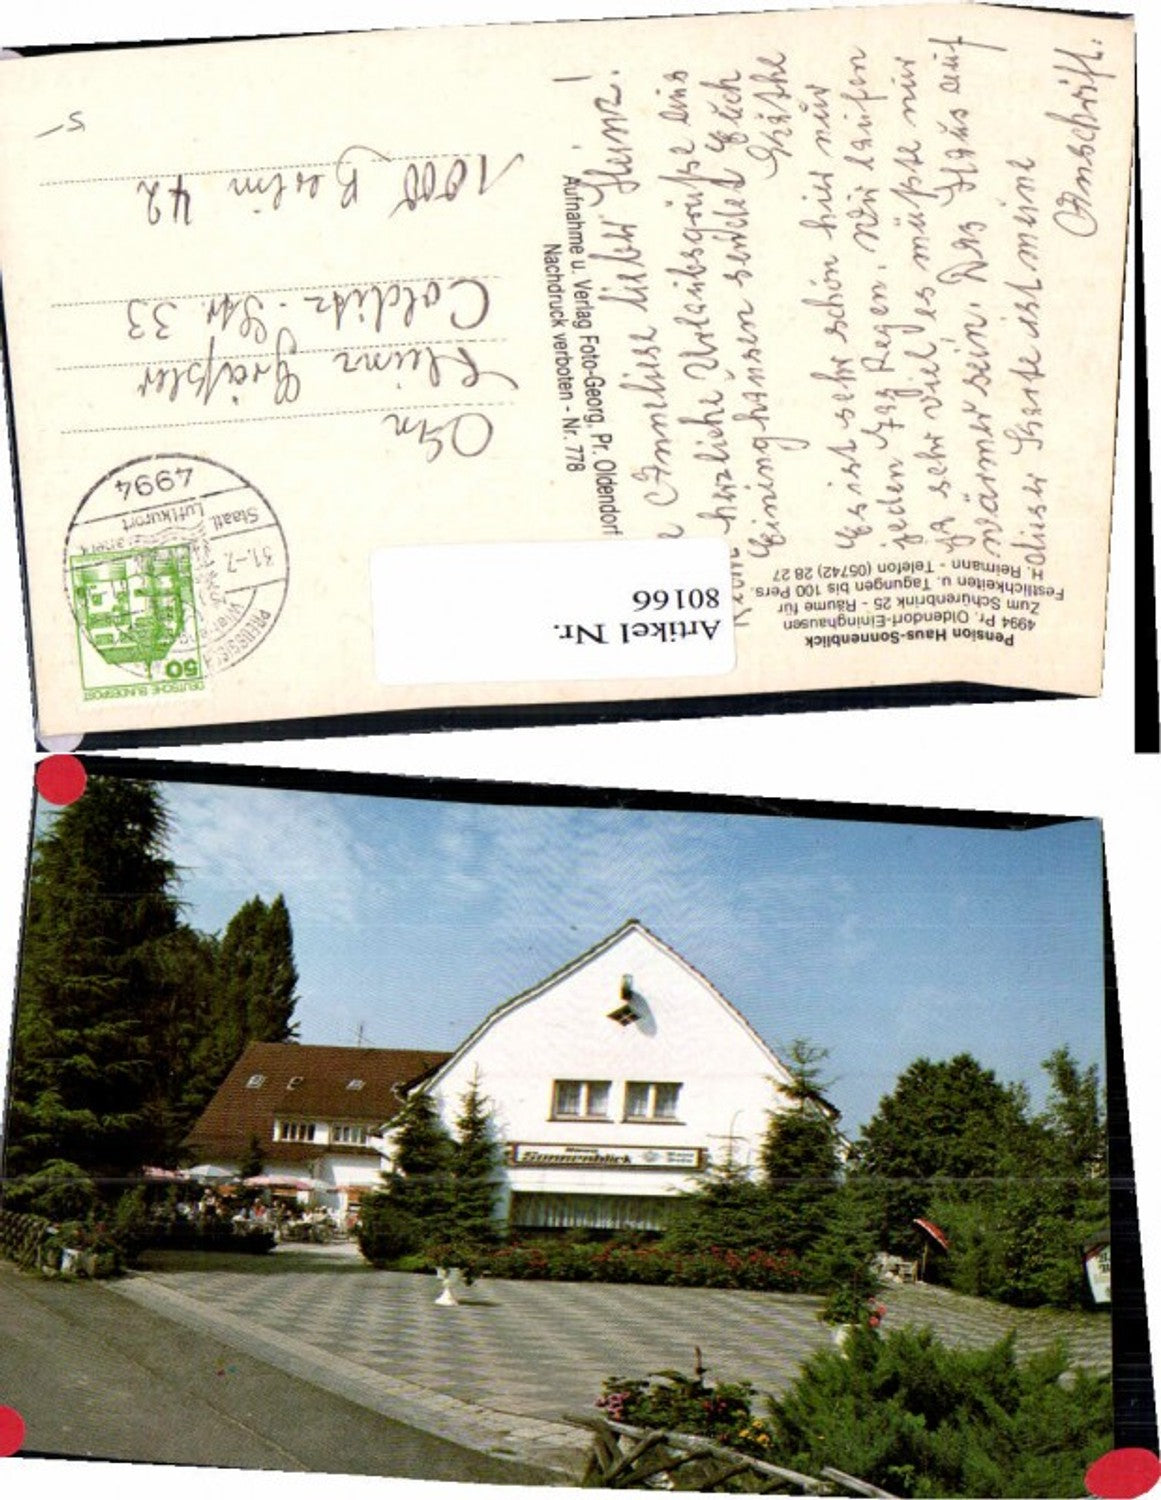 Pension Haus-Sonnenblick
4994 Pr. Oldendorf-Eininghausen
Zum Schürenbrink 25 - Räume für
Festlichkeiten u. Tagungen bis 100 Pers.
H. Reimann - Telefon (05742) 28 27
Anneliese lieber Heinz!
herzliche Urlaubsgrüße aus
Eininghausen sendet Euch
Käthe
Es ist sehr schön hier nur
jeden Tag Regen. Wir laufen
ja sehr viel, es müßte nur
wärmer sein. Das Haus auf
dieser Karte ist meine
Anschrift.
Aufnahme u. Verlag Foto-Georg, Pr. Oldendorf
Nachdruck verboten - Nr. 778
Artikel Nr.
80166
DEUTSCHE BUNDESPOST
50
31.-7.
Staatl. Luftkurort
4994
Heinz Gräßler
Colditz-Str. 33
1000 Berlin 42
5-
Sonnenblick